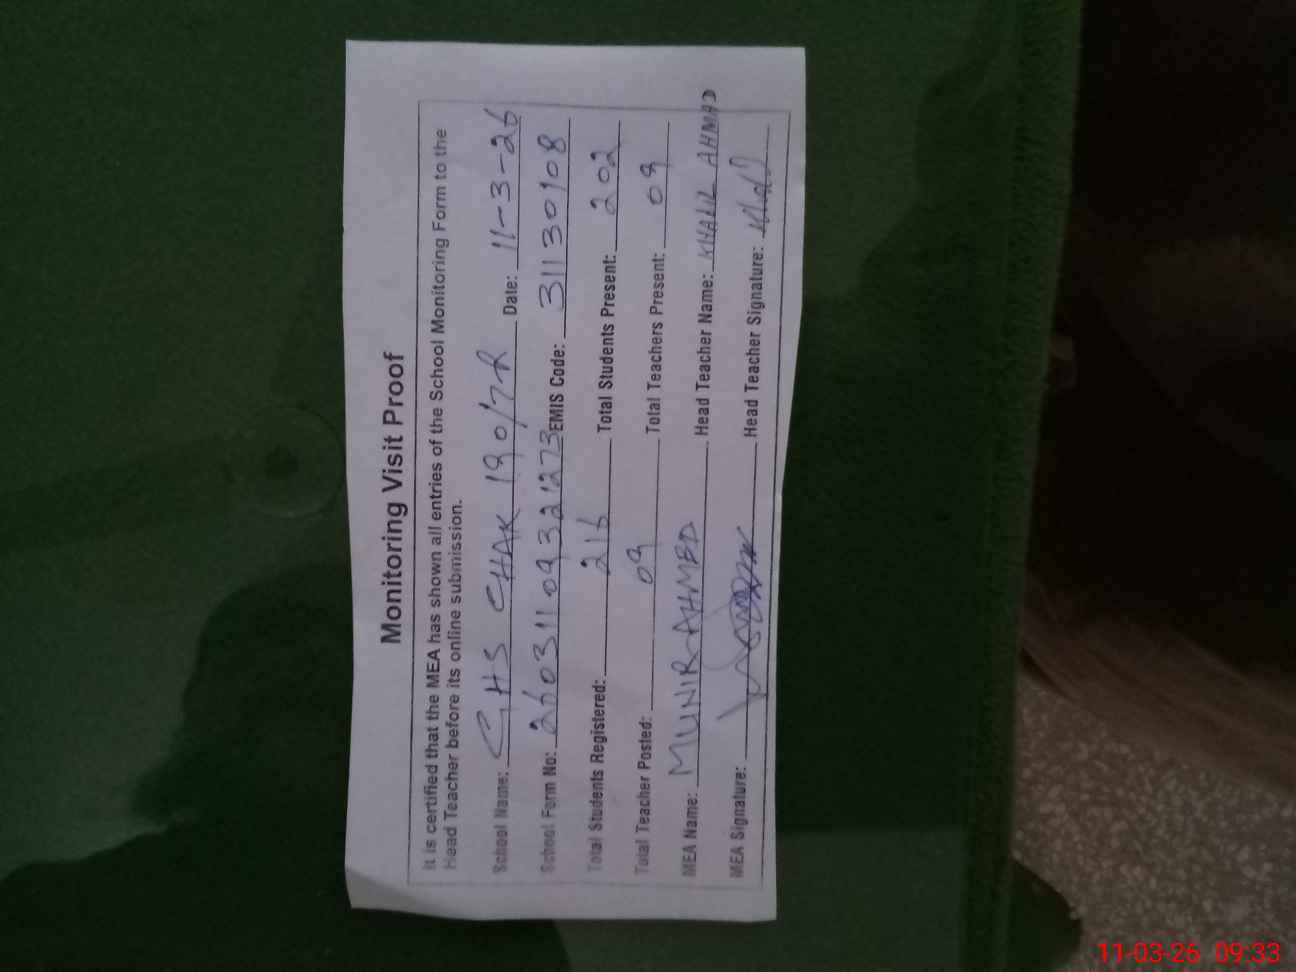 Monitoring Visit Proof
It is certified that the MEA has shown all entries of the School Monitoring Form to the
Head Teacher before its online submission.
School Name: GHS CHAK 190/7R Date: 11-3-26
School Form No: 26031109321273 EMIS Code: 31130108
Total Students Registered: 216 Total Students Present: 202
Total Teacher Posted: 09 Total Teachers Present: 09
MEA Name: MUNIR AHMED Head Teacher Name: KHALIL AHMAD
MEA Signature: Head Teacher Signature:
11-03-26 09:33